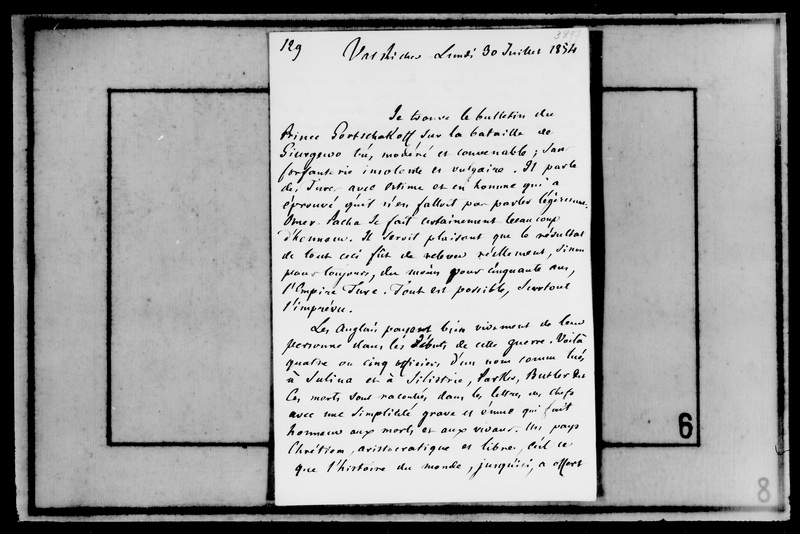 129
3897
Val Richer Lundi 30 Juillet 1854
Je trouve le bulletin du
Prince Gortschakoff sur la bataille de
Giurgewo très modéré et convenable ; san
forfanterie insolente et vulgaire. Il parle
des Turcs avec estime et en homme qui a
éprouvé qu'il n'en falloit pas parler légèrement.
Omer Pacha se fait certainement beaucoup
d'honneur. Il seroit plaisant que le résultat
de tout ceci fût de relever réellement, sinon
pour toujours, du moins pour cinquante ans,
l'Empire Turc. Tout est possible, surtout
l'imprévu.
Les Anglais payent bien vivement de leur
personne dans les débuts de cette guerre. Voilà
quatre ou cinq officiers d'un nom connu tués
à Sulina et à Silistrie, Parker, Butler &c.
Ces morts sont racontées dans les lettres des chefs
avec une simplicité grave et émue qui fait
honneur aux morts et aux vivans. Un pays
Chrétien, aristocratique et libre, c'est ce
que l'histoire du monde, jusqu'ici, a offert
6
8